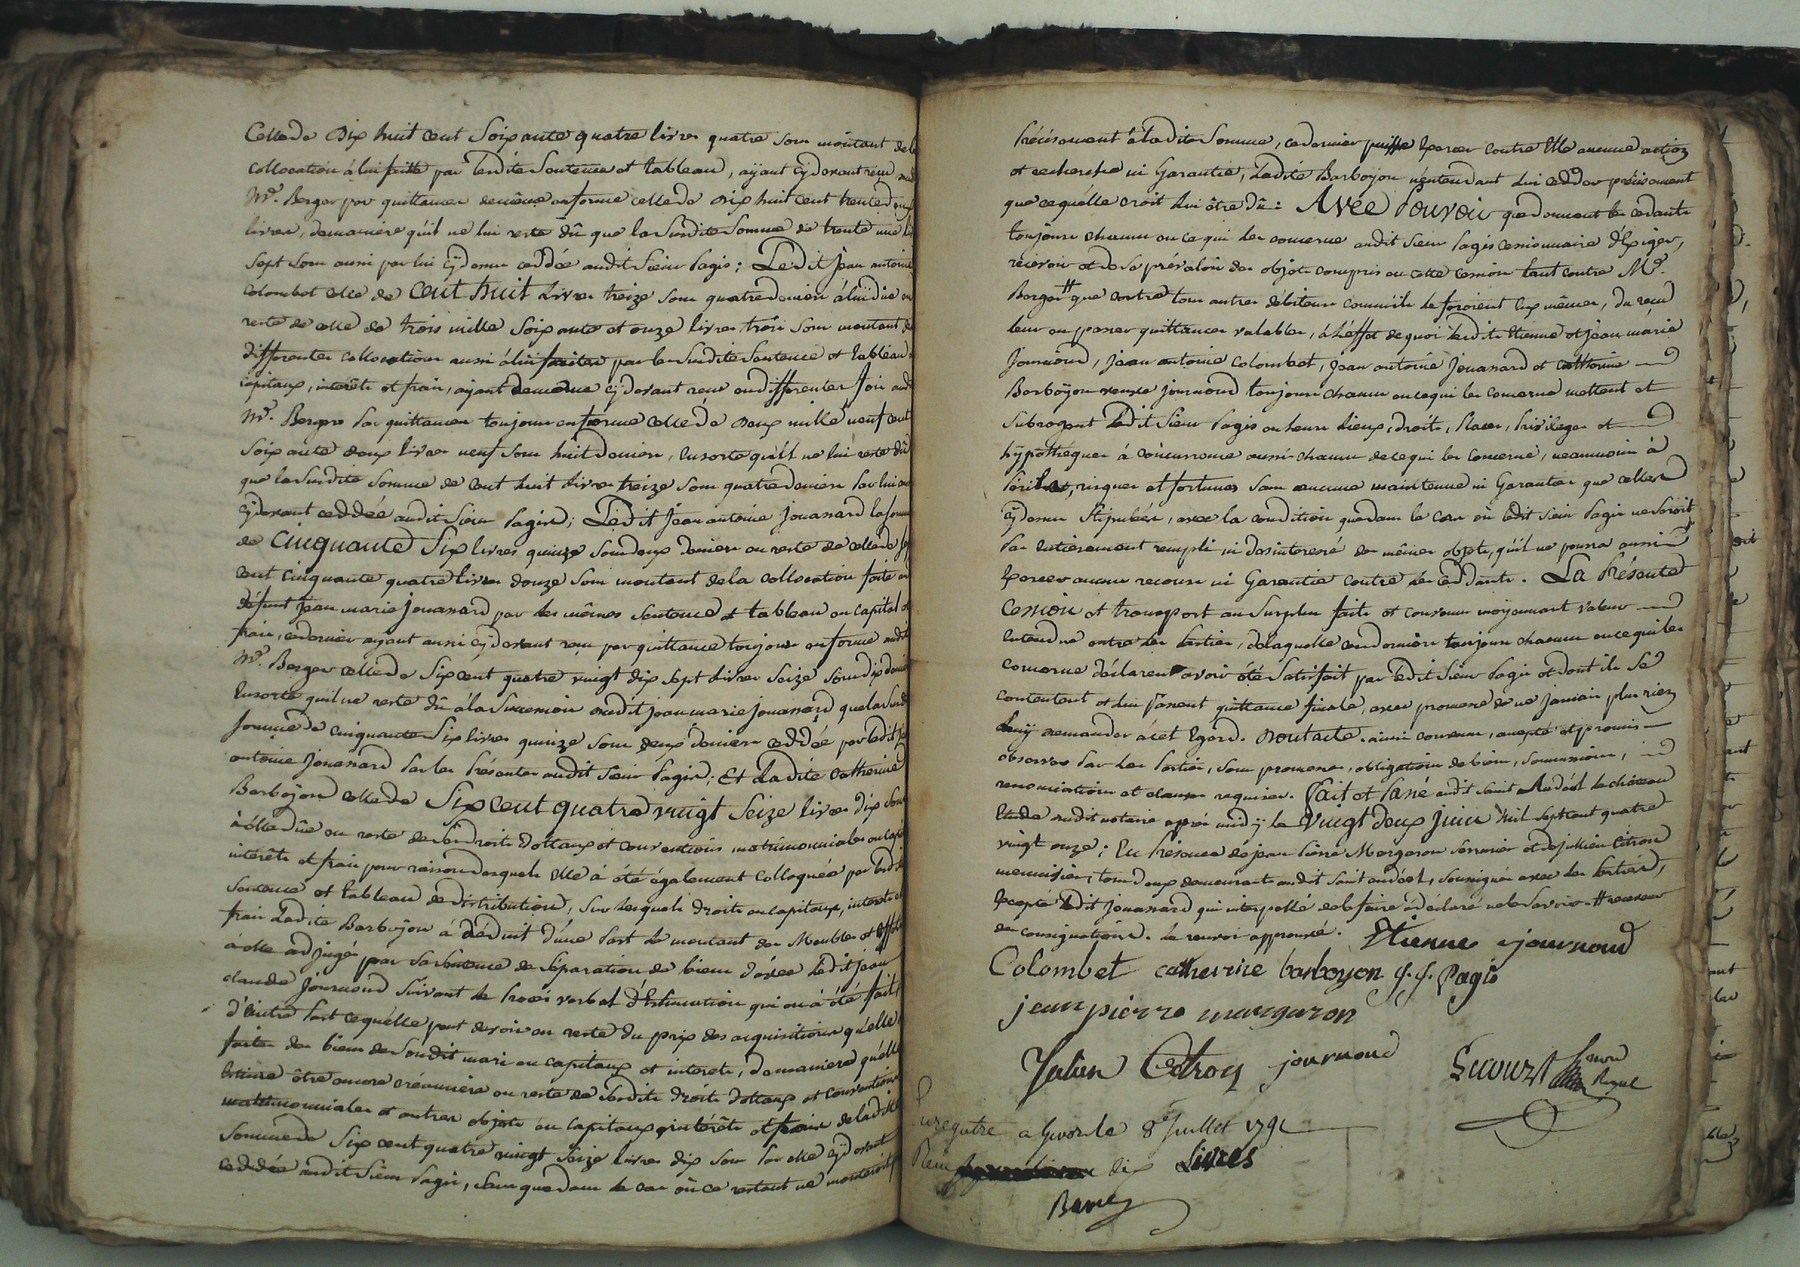 Celle de Dix huit cent Soixante quatre livres quatre sous montant de la
collocation à lui faitte par lesdite Sentence et tableau, ayant cÿ devant reçu
Mr. Berger par quittances de même en forme celle de Dix huit cent trente deux
livres, de maniere qu'il ne lui reste dû que la Susdite Somme de trente une
Sept Sous aussi par lui cÿ dessus ceddée audit Sieur Pagis; Ledit Jean antoine
Colombet celle de cent huit Livres treize Sous quatre deniers à lui dûe en
reste de celle de trois mille Soixante et onze livres trois Sous montant de
differentes collocations aussi à lui faites par les Susdite Sentence et tableau
capitaux, interêts et frais, ayant de même cÿ devant reçu en differentes fois
Mr. Berger Par quittances toujours en forme Celle de Deux mille neuf cent
Soixante deux livres neuf Sous huit deniers, ensorte qu'il ne lui reste dû
que la Susdite Somme de cent huit Livres treize Sous quatre deniers Par lui
cÿ devant ceddée audit Sieur Pagis; Ledit Jean antoine Jouanard la somme
de Cinquante Six livres quinze Sous deux deniers en reste de celle de Sept
cent cinquante quatre livres douze Sous montant de la collocation faite au
défunt Jean marie Jouanard par les mêmes Sentence et tableau en capital et
frais, ce dernier ayant aussi cÿ devant reçu par quittance toujours en forme
Mr. Berger celle de Six cent quatre vingt dix Sept Livres Seize Sous dix deniers
Ensorte qu'il ne reste dû à la Succession dudit jean marie Jouanard que la Susdite
Somme de cinquante Six livres quinze Sous deux deniers ceddée par ledit
antoine Jouanard Par les Présentes audit Sieur Pagis; Et Ladite Catherine
Barboÿon celle de Six cent quatre vingt Seize livres dix Sous
à elle dûe en reste de Ses Droits Dottaux et conventions matrimoniales en
interêts et frais pour raison desquels elle à été également colloquée par
Sentence et tableau de distribution, Sur lesquels droits en capitaux, interêts et
frais Ladite Barboÿon à déduit d'une Part le montant des Meubles et effets
à elle adjugé par Sa Sentence de Séparation de biens d'avec Ledit Jean
claude Journoud Suivant le Procès verbal d'Estimation qui en à été fait
d'autre Part ce qu'elle peut devoir en reste du prix des acquisitions qu'elle
faites des biens de Sondit mari en capitaux et interets, de maniere qu'elle
être encore créanciere en reste de Sesdits droits dottaux et conventions
matrimoniales et autres objets en capitaux, interêts et frais de ladite
Somme de Six cent quatre vingt Seize livres dix Sous Par elle cÿ devant
ceddée audit Sieur Pagis, Sans que dans le cas où ce restant ne
Précisement à ladite Somme, ce dernier puisse Exercer contre Elle aucune action
et recherche ni Garantie, Ladite Barboÿon n'entendant Lui cedder précisement
que ce qu'elle croit Lui être Dû: Avec Pouvoir que donnent les cedants
toujours chacun en ce qui les concerne audit Sieur Pagis cessionnaire d'Exiger,
recevoir et de se prévaloir des objets compris en cette cession tant contre Mr.
Berger que contre tous autres débiteurs comme ils le feroient Eux mêmes, du reçu
leur en passer quittances valables, à L'effet de quoi lesdits Etienne et Jean marie
Journoud, Jean antoine Colombet, Jean antoine Jouanard et catherine
Barboÿon veuve Journoud toujours chacun en ce qui les concerne mettent et
Subrogent Ledit Sieur Pagis en leurs Lieux, droits, Places, Privileges et
hÿpotheques à concurrence aussi chacun de ce qui les concerne, neanmoins à
Périls, risques et fortunes Sans aucune maintenue ni Garantie que celles
cÿ dessus Stipulées, avec la condition que dans le cas où ledit Sieur Pagis ne Seroit
Pas entierement rempli ni desinteressé des mêmes objets, qu'il ne pourra aussi
Exercer aucun recours ni Garantie contre les Ceddants. La Présente
Cession et transport au Surplus faite et convenue moyennant valeur
entendue entre les Parties, de laquelle ces derniers toujours chacun en ce qui les
concerne déclarent avoir été Satisfait par Ledit Sieur Pagis et dont ils Se
contentent et lui Passent quittance finale, avec promesse de ne Jamais plus rien
Lui demander à cet Egard. Dont acte. ainsi convenu, accepté et promis
observer Par Les Parties, Sous promesse, obligation de biens, Soumissions,
renonciations et clauses requises. Fait et Passé audit Saint Andéol le château
Etude dudit notaire après midÿ le Vingt deux Juin mil Sept cent quatre
vingt onze; En Présence de Jean Pierre Margaron Serrurier et de Jullien Citron
menuisier, tous deux demeurants audit Saint andéol, Soussignés avec les Parties,
Excepté Ledit Jouanard qui interpellé de le faire à declaré ne le Savoir # receveur
des consignations. Le renvoi approuvé. Etienne journoud
Colombet catherine barboyon J. J. Pagis
jean pierre margaron
Julien Citron journoud
Lecourt Nore Royal
Enregistré à Givors le 8 Juillet 1791
Reçu dix Livres